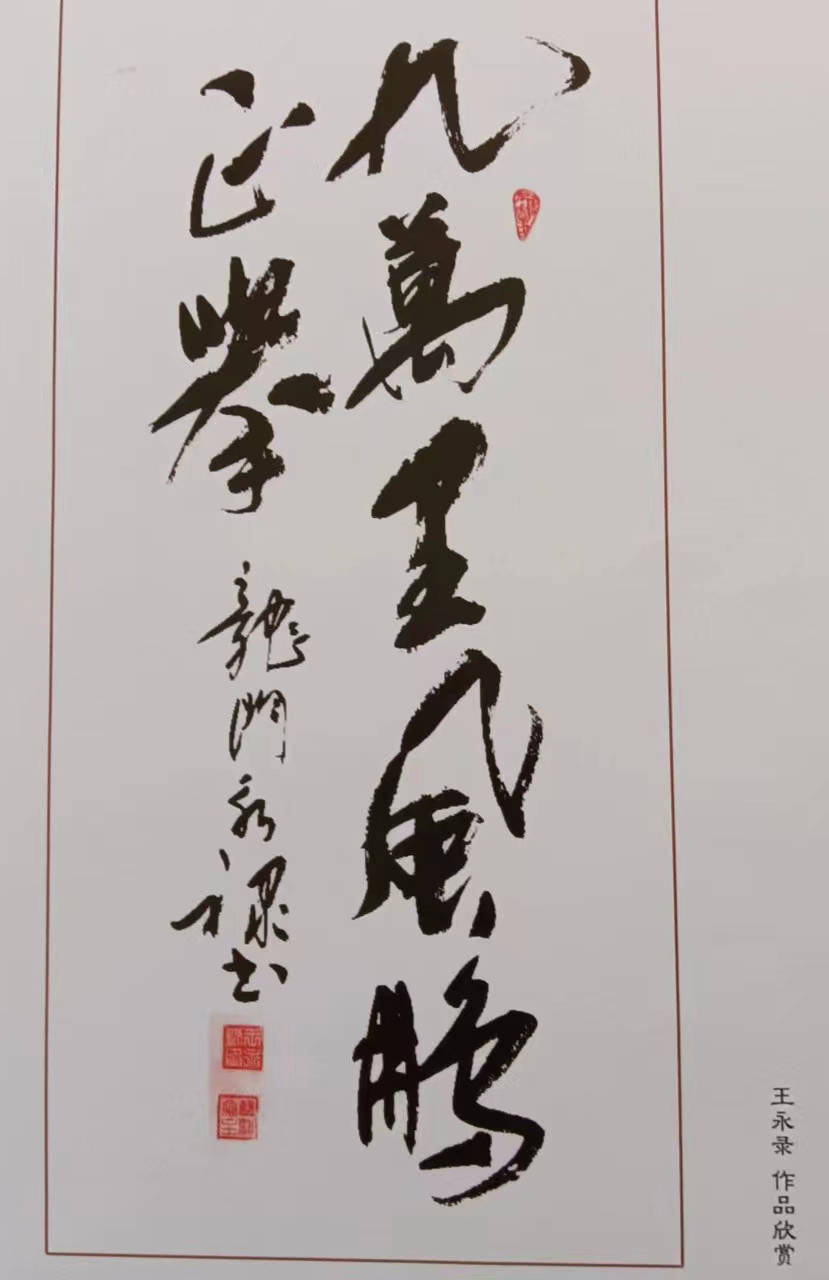 九萬里風鵬
正舉
龍門永禄书
王永录 作品欣赏